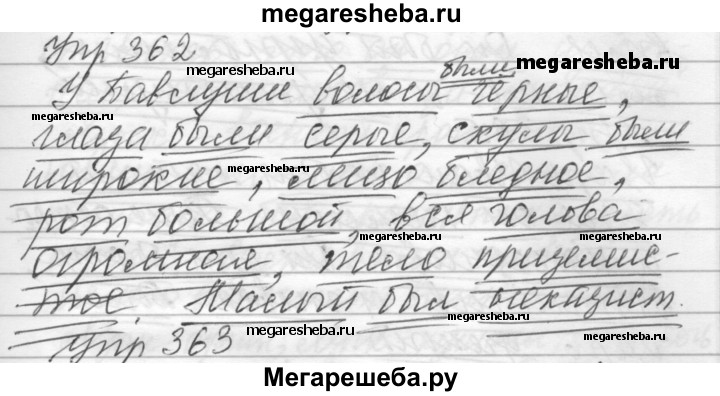 megaresheba.ru
Упр 362
megaresheba.ru
были
megaresheba.ru
У Павлуши волосы чёрные,
megaresheba.ru
глаза были серые, скулы были
megaresheba.ru
megaresheba.ru
широкие, лицо бледное,
рот большой, вся голова
megaresheba.ru
огромная, тело приземис-
тое Малый был неказист.
megaresheba.ru
megaresheba.ru
Упр 363
Мегарешеба.ру